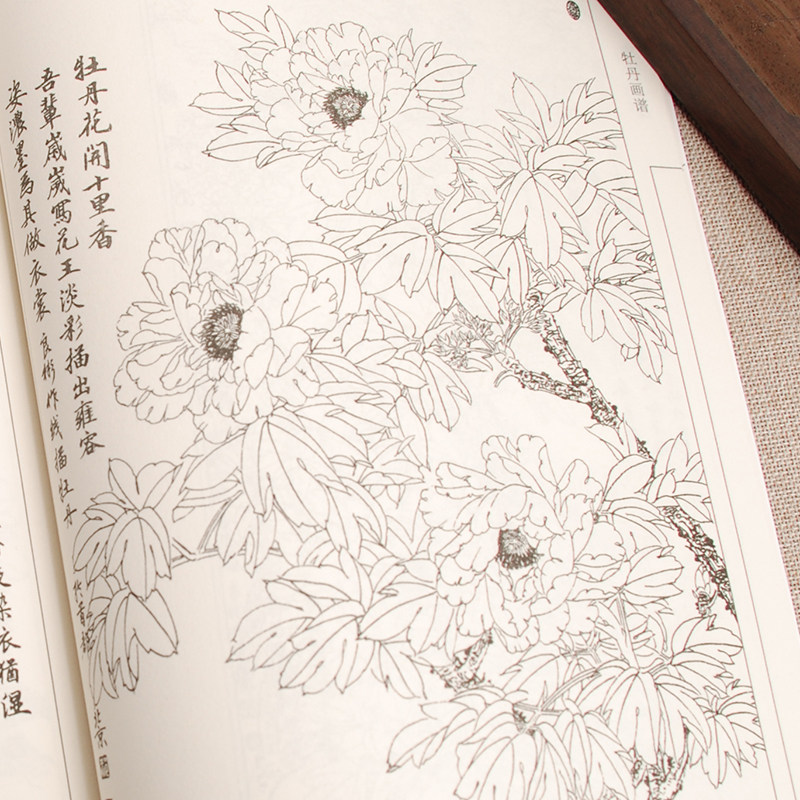 牡丹画谱
牡丹花開十里香
吾輩歲歲寫花王淡彩描出雍容
姿濃墨為其做衣裳 良彬作线描牡丹
作首
北京
衣猶湿